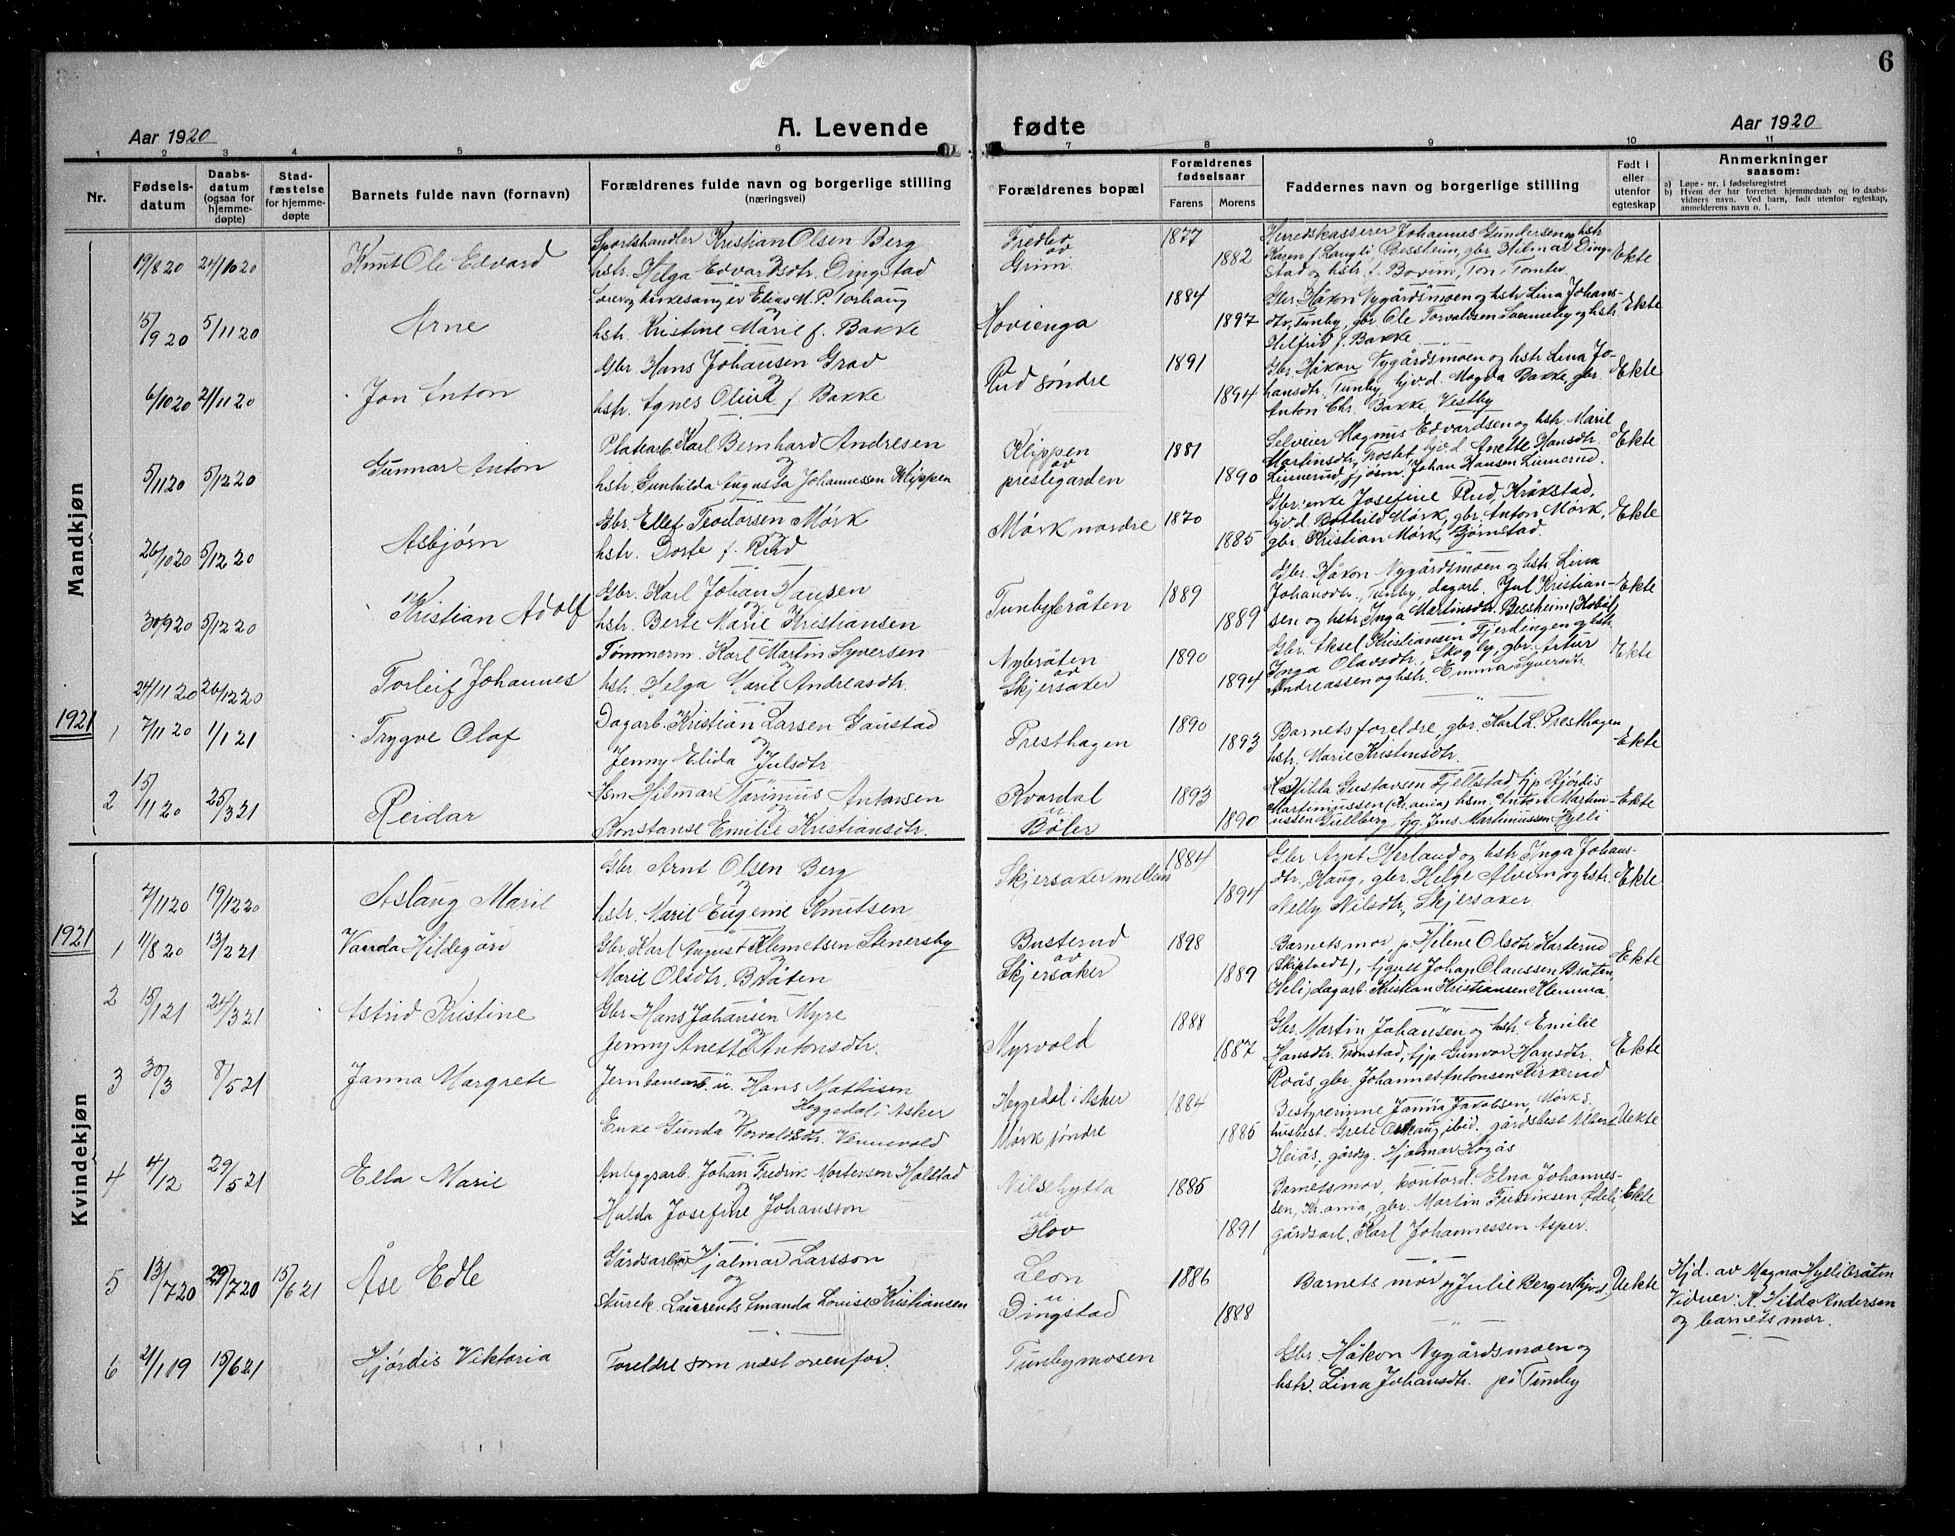 6
Aar 1920
A. Levende fødte
Aar 1920
1 2 3 4 5 6 7 8 9 10 11
Nr.
Fødsels-
datum
Daabs-
datum
(ogsaa for
hjemme-
døpte)
Stad-
fæstelse
for hjemme-
døpte
Barnets fulde navn (fornavn)
Forældrenes fulde navn og borgerlige stilling
(næringsvei)
Forældrenes bopæl
Forældrenes
fødselsaar
Farens
Morens
Faddernes navn og borgerlige stilling
Født i
eller
utenfor
egteskap
Anmerkninger
saasom:
a) Løpe-nr. i fødselsregistret
b) Hvem der har forrettet hjemmedaab og to daabs-
vidners navn. Ved barn, født utenfor egteskap,
anmelderens navn o. l.
Mandkjøn
19/8 20 24/10 20 Knut Ole Edvard
Sportshandler Kristian Olsen Berg
og
hstr. Helga Edvardsdtr. Dingstad
Fredbo
av
Grini
1877
1882
Herredskasserer Johannes Gundersen og hstr
Karen f. Langli, Bessheim, gbr Hilmar Ding-
stad og hstr. f. Bovim, Ton i Tomter
Ekte
15/9 20 5/11 20 Arne
Lærer og kirkesanger Elias M. P. Torhaug
og
hstr. Kristine Marie f. Bakke
Hovienga
1884
1897
Gbr Håkon Nygårdsmoen og hstr Lina Johans-
dtr, Tunby, gbr Ole Torvaldsen Svenneby og hstr
Hilfrid f. Bakke
Ekte
6/10 20 21/11 20 Jon Anton
Gbr Hans Johansen Grav
og
hstr. Agnes Olina f. Bakke
Rud søndre
1891
1894
Gbr. Håkon Nygårdsmoen og hstr Lina Jo-
hansdtr, Tunby, hjv.d. Magda Bakke, gbr
Anton Chr. Bakke, Vestby
Ekte
5/11 20 5/12 20 Gunnar Anton
Platearb. Karl Bernhard Andresen
og
hstr. Gunhilda Augusta Johannessen Klippen
Klippen
av
prestegarden
1881
1890
Selveier Magnus Edvardsen og hstr. Marie
Martinsdtr, hjv.d. Anette Hansdtr.
Linnerud, Johan Hansen Linnerud.
Ekte
26/10 20 5/12 20 Asbjørn
Gbr. Ellef Teodorsen Mørk
og
hstr. Dorte f. Rud
Mørk nordre
1870
1885
Gbr.enke Josefine Rud, Kråkstad,
hjv.d. Bothild Mørk, gbr. Anton Mørk,
gbr. Kristian Mørk, Bjørnstad.
Ekte
30/9 20 5/12 20 Kristian Adolf
Gbr. Karl Johan Hansen
og
hstr. Berte Marie Kristiansen
Tunbybråten
1889
1889
Gbr. Håkon Nygårdsmoen og hstr. Lina
Johansdtr., Tunby, dagarb. Jul Kristian-
sen og hstr. Inga Martinsdtr. Bessheim (Hobøl)
Ekte
24/11 20 26/12 20 Torleif Johannes
Tømmerm. Karl Martin Syversen
og
hstr. Helga Marie Andreasdtr.
Nybråten
av
Skjersaker
1890
1894
Gbr. Aksel Kristiansen Fjerdingen og hstr
Inga Olavsdtr., Skogly, gbr. Artur
Andreassen og hstr. Emma Syversdtr
Ekte
1921
1 7/11 20 1/1 21 Trygve Olaf
Dagarb. Kristian Larsen Gaustad
og
Jenny Elida Julsdtr
Presthagen
1890
1893
Barnets foreldre, gbr. Karl L. Presthagen
hstr. Marie Kristinsdtr.
Ekte
2 15/11 20 25/3 21 Reidar
Hsm Hilmar Marinius Antonsen
Konstanse Emilie Kristiansdtr.
Kvardal
u
Bøler
1893
1890
K. Hilda Gustavsen Fjellstad, hjp Hjørdis
Martinussen (Kr.ania) hsm. Anton Martin-
ussen Gullberg, Jens Martinussen Hylli
Ekte
Kvindekjøn
7/11 20 19/12 20 Aslaug Marie
Gbr Arnt Olsen Berg
og
hstr. Marie Eugenie Knutsen
Skjersaker mellem
1884
1894
Gbr Arnt Herland og hstr Inga Johans-
dtr, Haug, gbr Helge Alvim og hstr.
Nelly Nilsdtr., Skjersaker
Ekte
1921
1 11/8 20 13/2 21 Vanda Hildegård
Gbr. Karl August Klemetsen Stenersby
og
Marie Olsdtr. Bråten
Busterud
av
Skjersaker
1898
1889
Barnets mor, p. Helene Olsdtr Harterud
(Skiptvedt), hjgutt Johan Claussen Bråten
(Heli) dagarb Kristian Kristiansen Klemma.
Ekte
2 15/1 21 24/3 21 Astrid Kristine
Gbr. Hans Johansen Myre
og
Jenny Anette Antonsdtr.
Myrvold
1888
1887
Gbr. Martin Johansen og hstr. Emilie
Hansdtr. Tronstad, hjp. Gunvor Hansdtr.
Roås, gbr. Johannes Antonsen Kirkerud
Ekte
3 30/3 8/5 21 Janna Margrete
Jernbanearb. u. Hans Mathisen
Heggedal i Asker
Enke Gunda Torvaldsdtr. Vennevold
Heggedal i Asker
Mørk søndre
1884
1885
Bestyrerinne Janna Jakobsen, Mørk s.
husbest. Grete Oshaug ibid. gårdsbest Albert
Heiås, gårdsg. Hjalmar Høgås
Uekte
4 4/12 29/5 21 Ella Marie
Anleggsarb. Johan Fredrik Mortensen Halstad
og
Hulda Josefine Johansson
Nilsehytta
u
Hov
1885
1891
Barnets mor, kontord. Elna Johannes-
sen, Kr.ania, gbr. Martin Fredriksen Ødeli,
gårdsarb. Karl Johannessen Asper.
Ekte
5 13/7 20 29/7 20 15/6 21 Åse Edle
Gårdsarb. Hjalmar Larsson
og
Sturek. Laurents Amanda Lovise Kristiansen
Leon
u
Dingstad
1886
1888
Barnets mor og Julie Berger hjv.d.
Uekte
Hjd. av Magna Hyllibråten
Vidner: K. Hilda Andersen
og barnets mor.
6 21/1 19 15/6 21 Hjørdis Viktoria
Foreldre som næst ovenfor.
Tunbymosen
Gbr. Håkon Nygårdsmoen og
hstr. Lina Johansdtr. på Tunby